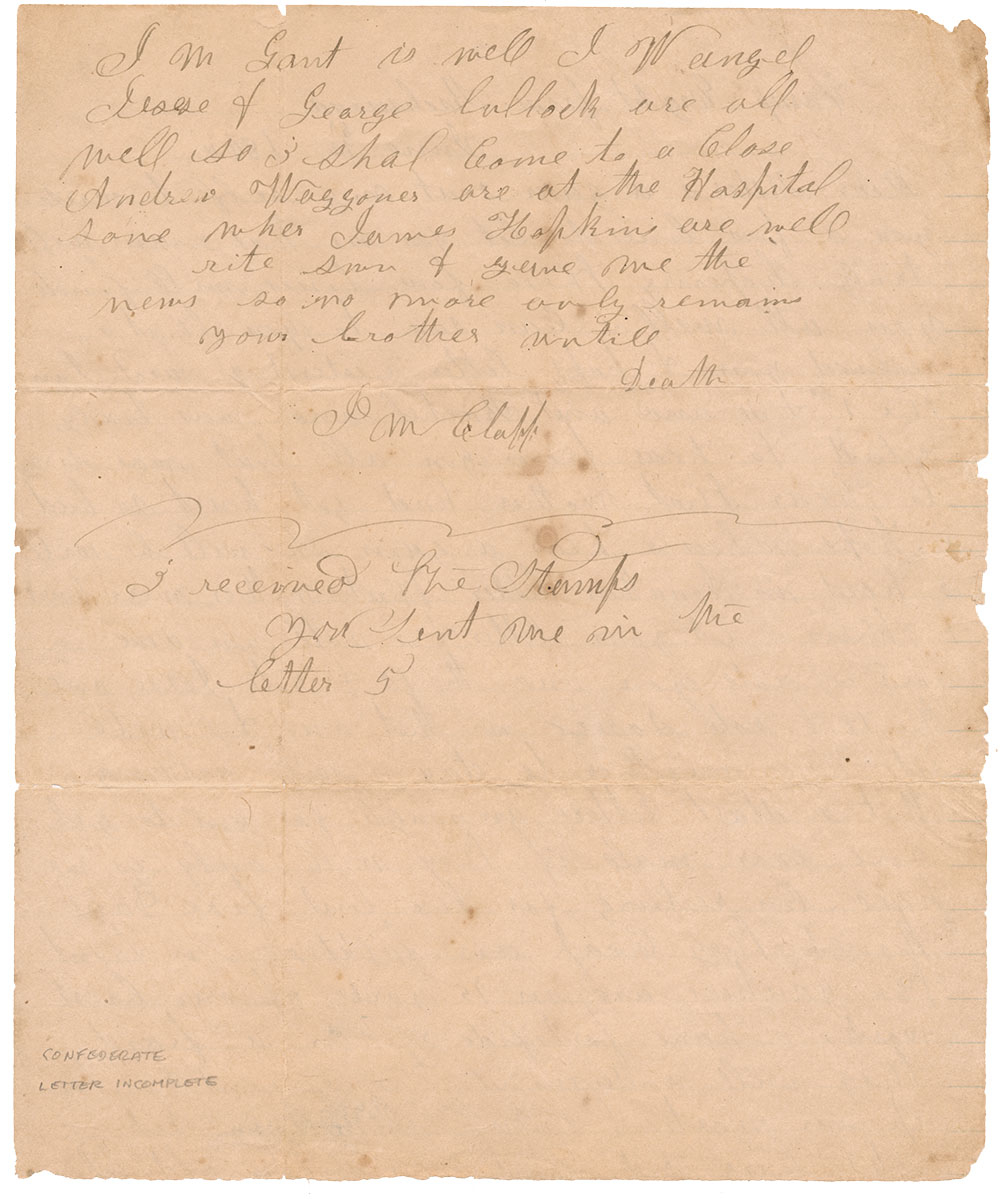 J M Gant is well J Wangel
Jesse & George Cullock are all
well so I shal Come to a Close
Andrew Waggoner are at the Hospital
some wher James Hopkins are well
rite sun & give me the
news so no more only remains
your brother untill
death
J M Clapp
I received the Stamps
you Sent me in the
letter 5
CONFEDERATE
LETTER INCOMPLETE